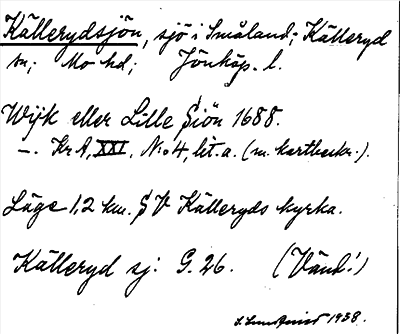 Källerydsjön, sjö i Småland; Källeryd
sn; Mo hd; Jönköp. l.
Wijk eller Lille Siön 1688.
—. Kr A, XXI, N:o 4, lit. a. (m. kartbeskr.).
Läge 1,2 km. S V Källeryds kyrka.
Källeryd sj. G. 26. (Vänd!)
1938.